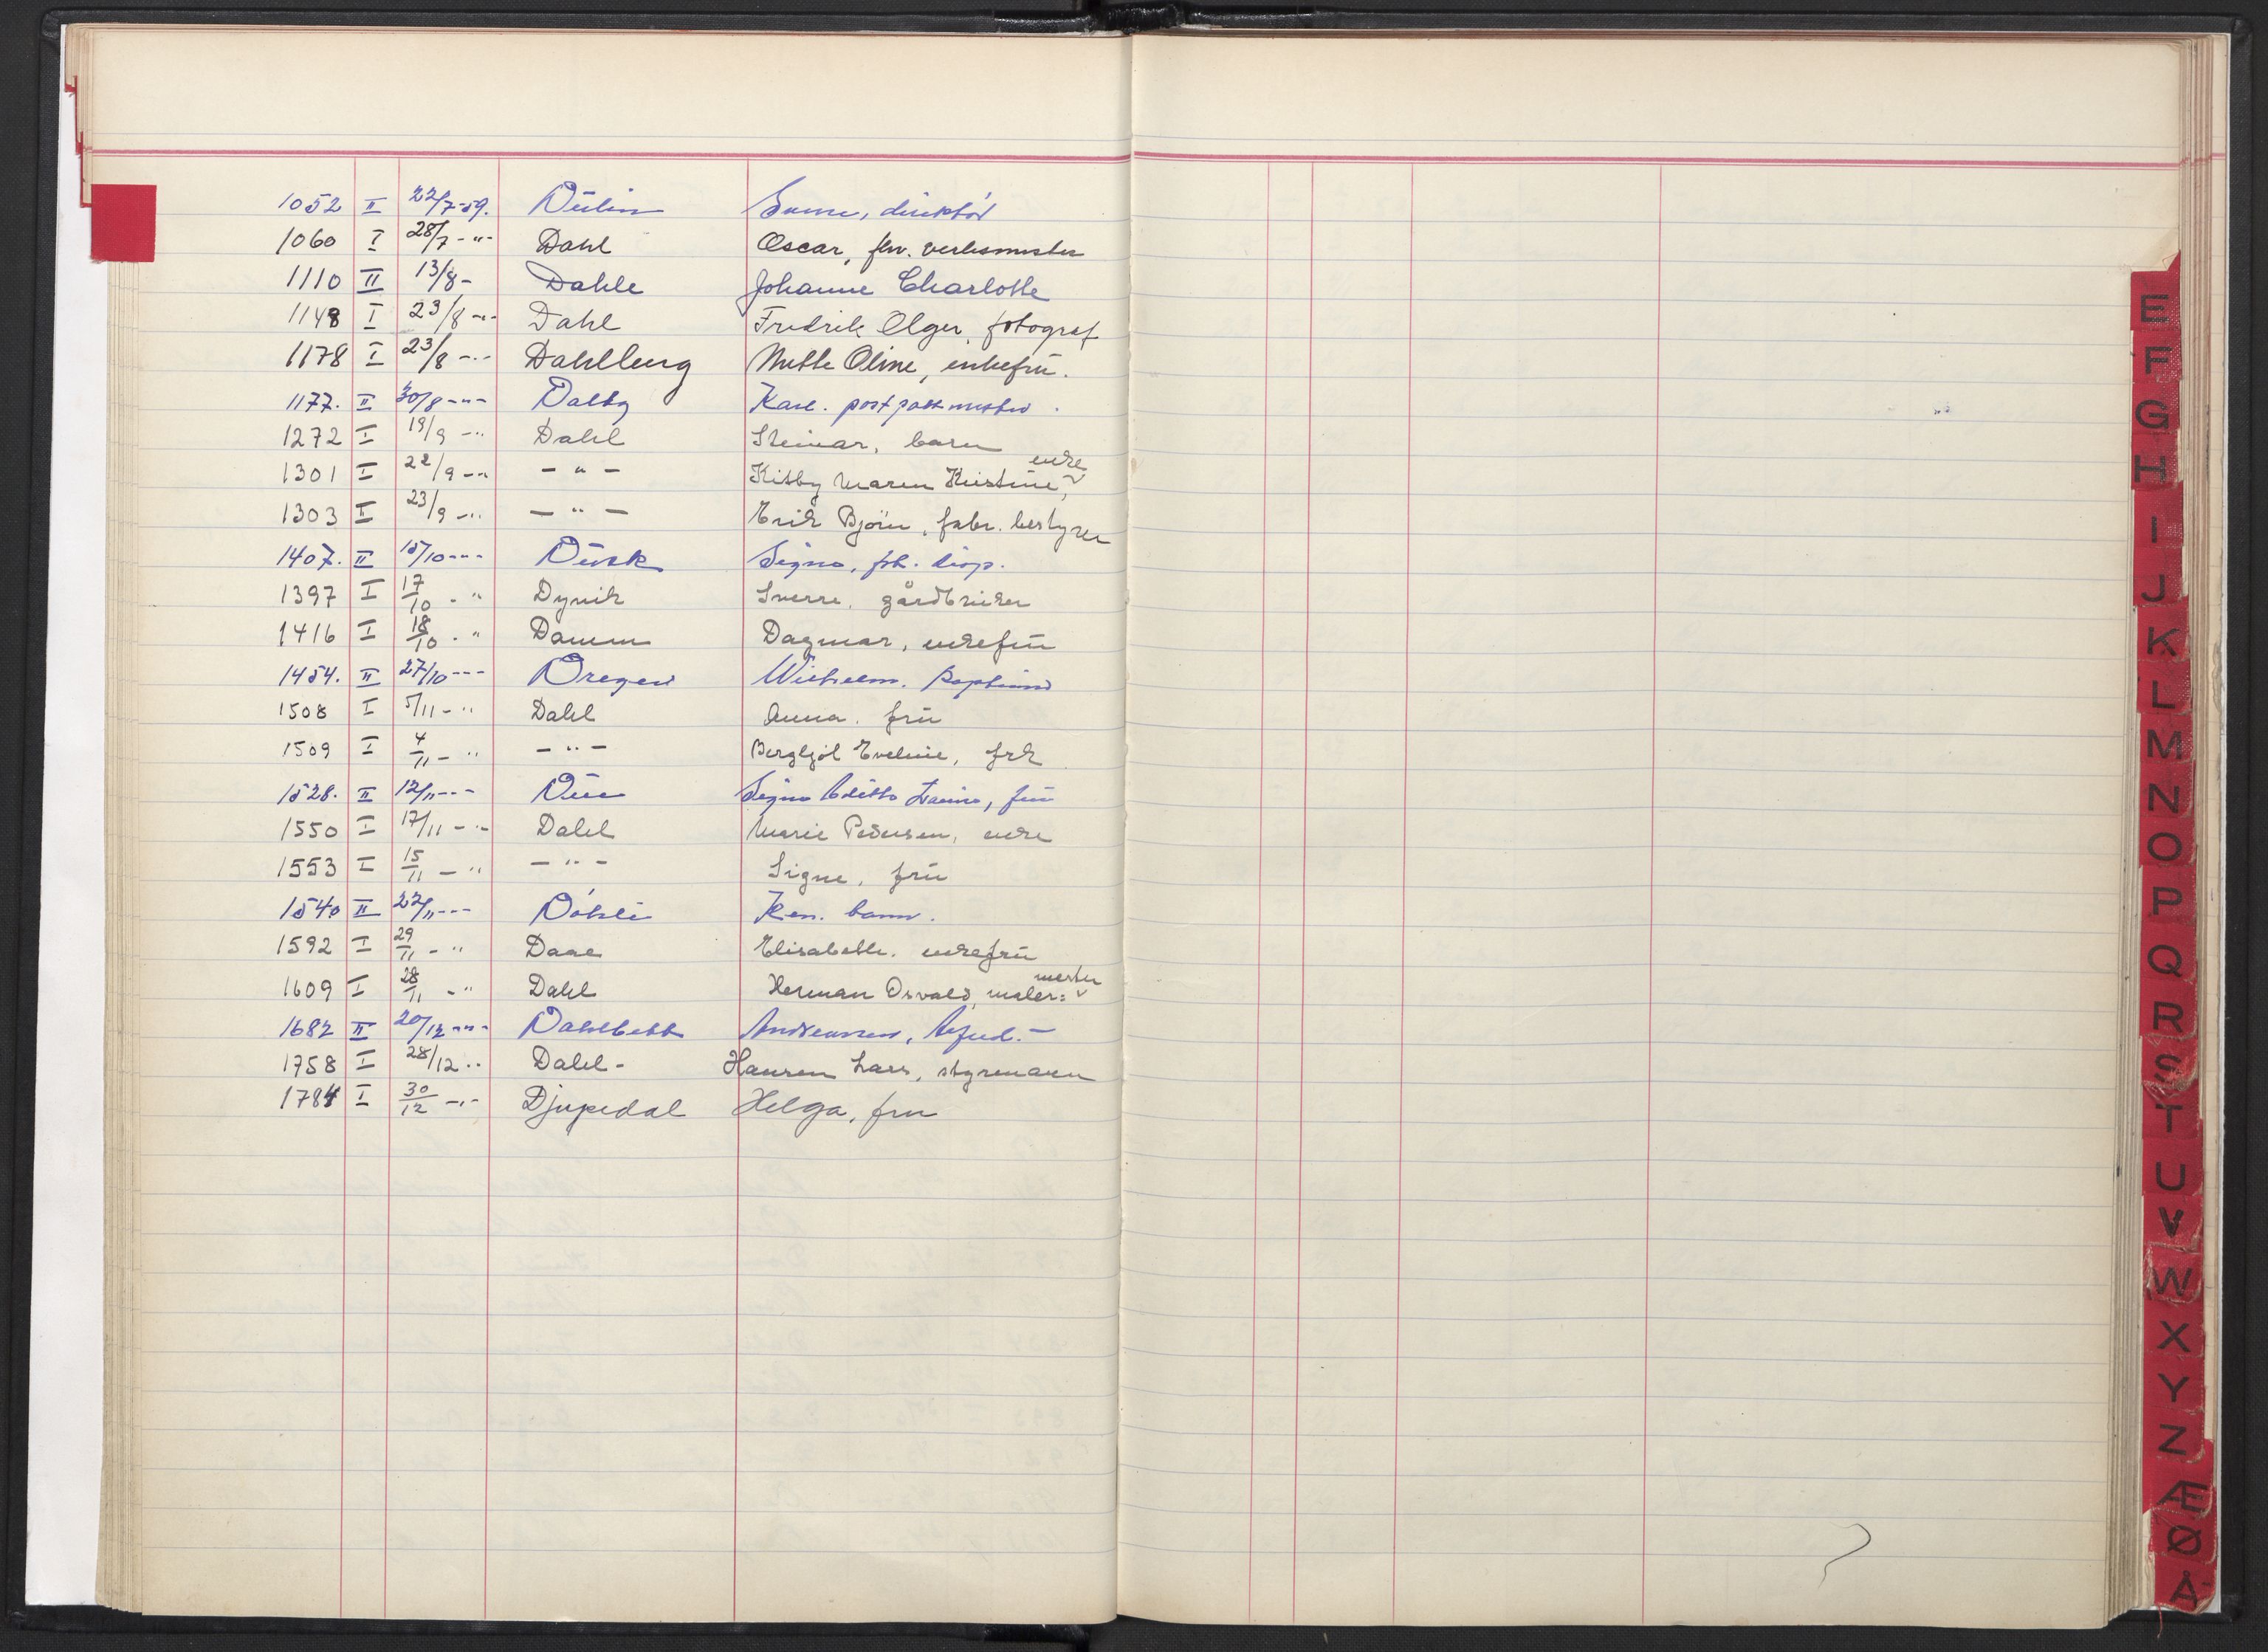 1052 II 22/7-59. Dülin direktör
1060 I 28/7 - " - Dahl Oscar, fhv. verksmester
1110 II 13/8 - Dahle Johanne Charlotte
1148 I 23/8 - " - Dahl Fredrik Olger, fotograf
1178 I 23/8 - " - Dahlberg Mette Oline, enkefrü.
1177. II 30/8 - " - Dalby Karl. postpakkmester.
1272 I 19/9 - " Dahl Steinar, barn
1301 I 22/9 - " - " - Kitby Maren Kristine, enke
1303 II 23/9 - " - " - Erik Bjørn, fabr. bestyrer
1407. II 15/10 - " - Dürk Signe, frk. disp.
1397 I 17/10 - " Dynik Sverre, gårdbrüker
1416 I 18/10 - " Damm Dagmar, enkefrü
1454. II 27/10 - " - Dreyer Wilhelm. Kaptein
1508 I 5/11 - " Dahl Anna. frü
1509 I 4/11 - " - " - Bergljot Eveline, frk
1528. II 12/11 - " - Düe Signe frü
1550 I 17/11 - " - Dahl Marie Pedersen, enke
1553 I 15/11 - " - " - Signe, frü
1540 II 22/11 - " - Döhli Ken. barn.
1592 I 29/11 - " Daae Elisabeth. enkefrü
1609 I 28/11 - " Dahl Herman Osvald, maler= mester
1682 II 20/12 - " - Dahlbakk Andreassen,
1758 I 28/12 " Dahl - Hansen Lars, styrmann
1784 I 30/12 - " - Djupedal Helga, fru
E
F
G
H
I
J
K
L
M
N
O
P
Q
R
S
T
U
V
W
X
Y
Z
Æ
Ø
Å